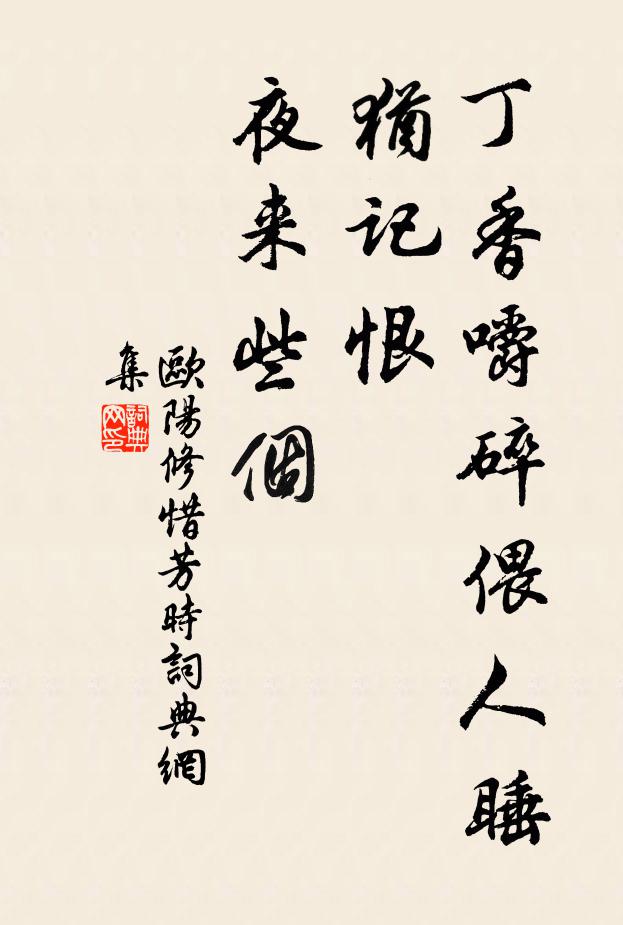 丁香嚼碎偎人睡
猶记恨
夜来些個
歐陽修惜芳時詞典網
集
詞典
网印